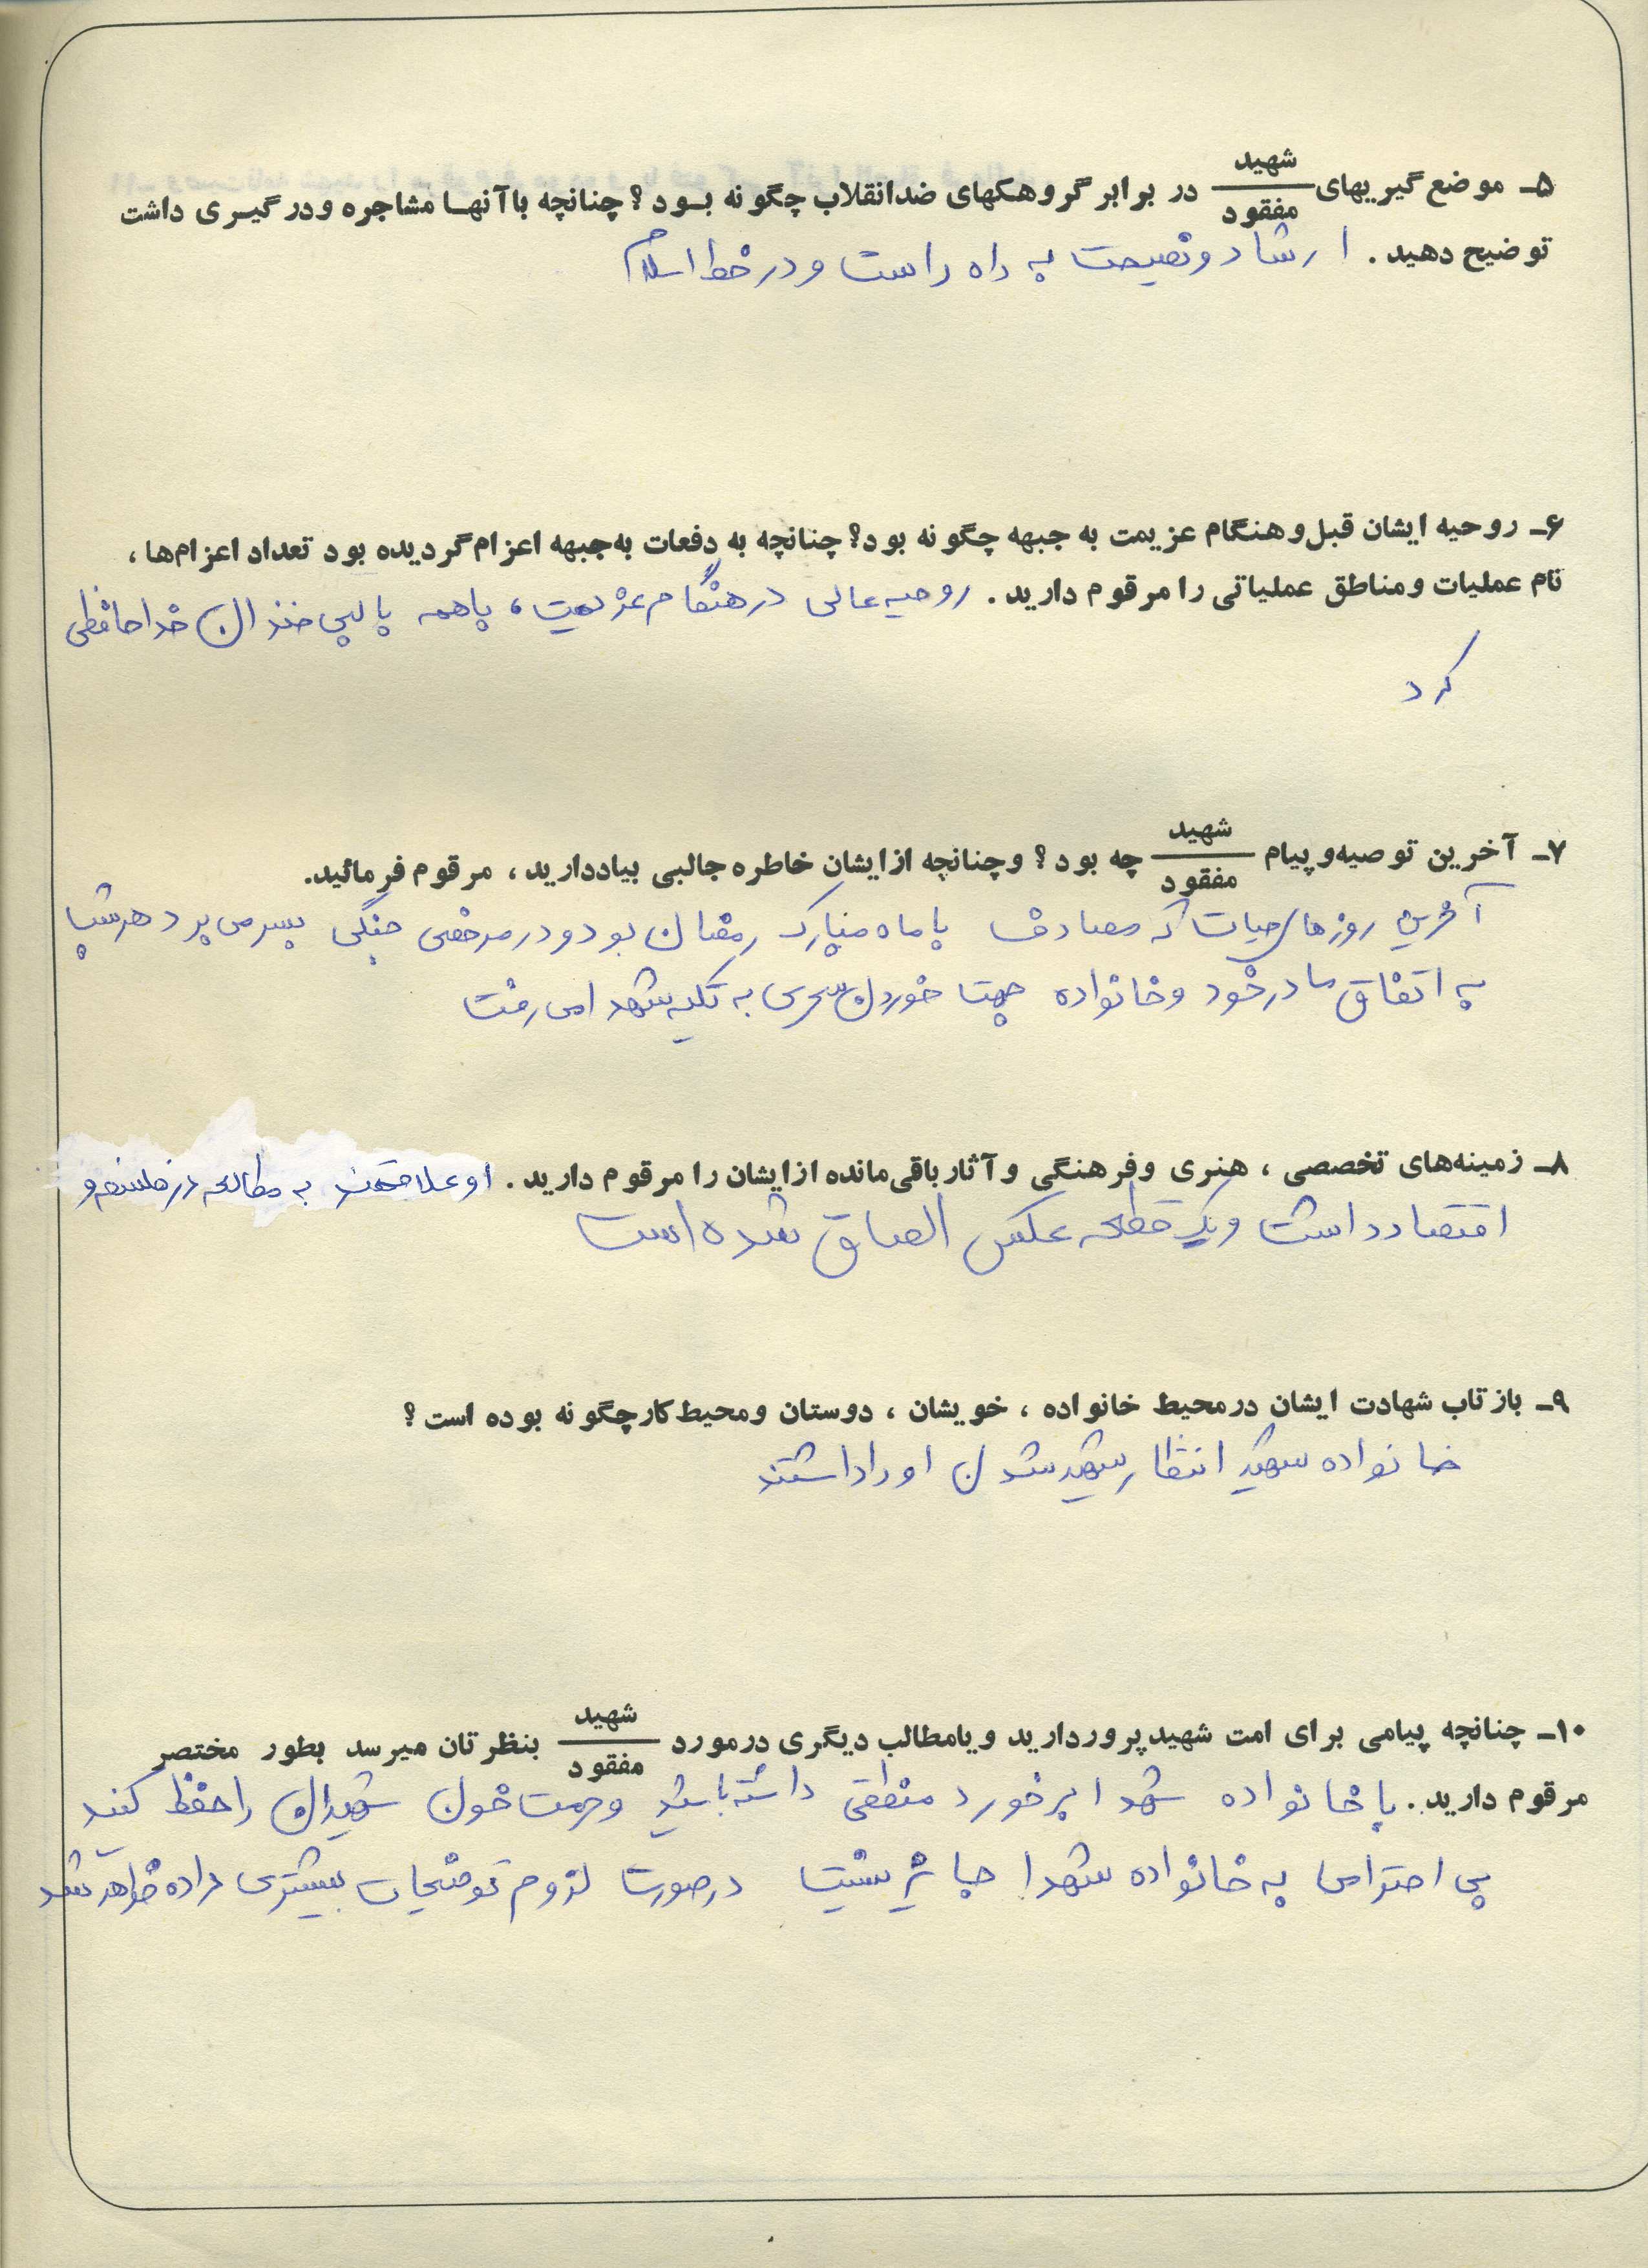 ۵ـ موضع‌گیریهای شهید/مفقود در برابر گروهکهای ضدانقلاب چگونه بود؟ چنانچه باآنها مشاجره ودرگیری داشت
توضیح دهید. ارشاد و نصیحت به راه راست و در خط اسلام
۶ـ روحیه ایشان قبل‌وهنگام عزیمت به جبهه چگونه بود؟ چنانچه به دفعات به‌جبهه اعزام‌گردیده بود تعداد اعزام‌ها،
نام عملیات ومناطق عملیاتی را مرقوم دارید. روحیه عالی در هنگام عزیمت، باهمه با لبی خندان خداحافظی
کرد
۷ـ آخرین توصیه‌وپیام شهید/مفقود چه بود؟ وچنانچه ازایشان خاطره‌جالبی بیاددارید، مرقوم فرمائید.
آخرین روزهای حیات که مصادف با ماه مبارک رمضان بود و در مرخصی جنگی بسر می برد هر شب
به اتفاق مادر خود و خانواده جهت خوردن سحری به تکیه شهدا می رفت
۸ـ زمینه‌های تخصصی، هنری وفرهنگی وآثارباقی‌مانده ازایشان را مرقوم دارید. او علاقمند به مطالعه در فلسفه و
اقتصاد داشت و یک قطعه عکس الصاق شده است
۹ـ بازتاب شهادت ایشان درمحیط خانواده، خویشان، دوستان ومحیط‌کارچگونه بوده است؟
خانواده شهید انتظار شهید شدن او را داشتند
۱۰ـ چنانچه پیامی برای امت شهیدپروردارید ویامطالب دیگری درمورد شهید/مفقود بنظرتان میرسد بطور مختصر
مرقوم دارید. با خانواده شهدا برخورد منطقی داشته باشید و حرمت خون شهیدان را حفظ کنید
بی احترامی به خانواده شهدا جایز نیست در صورت لزوم توضیحات بیشتری داده خواهد شد